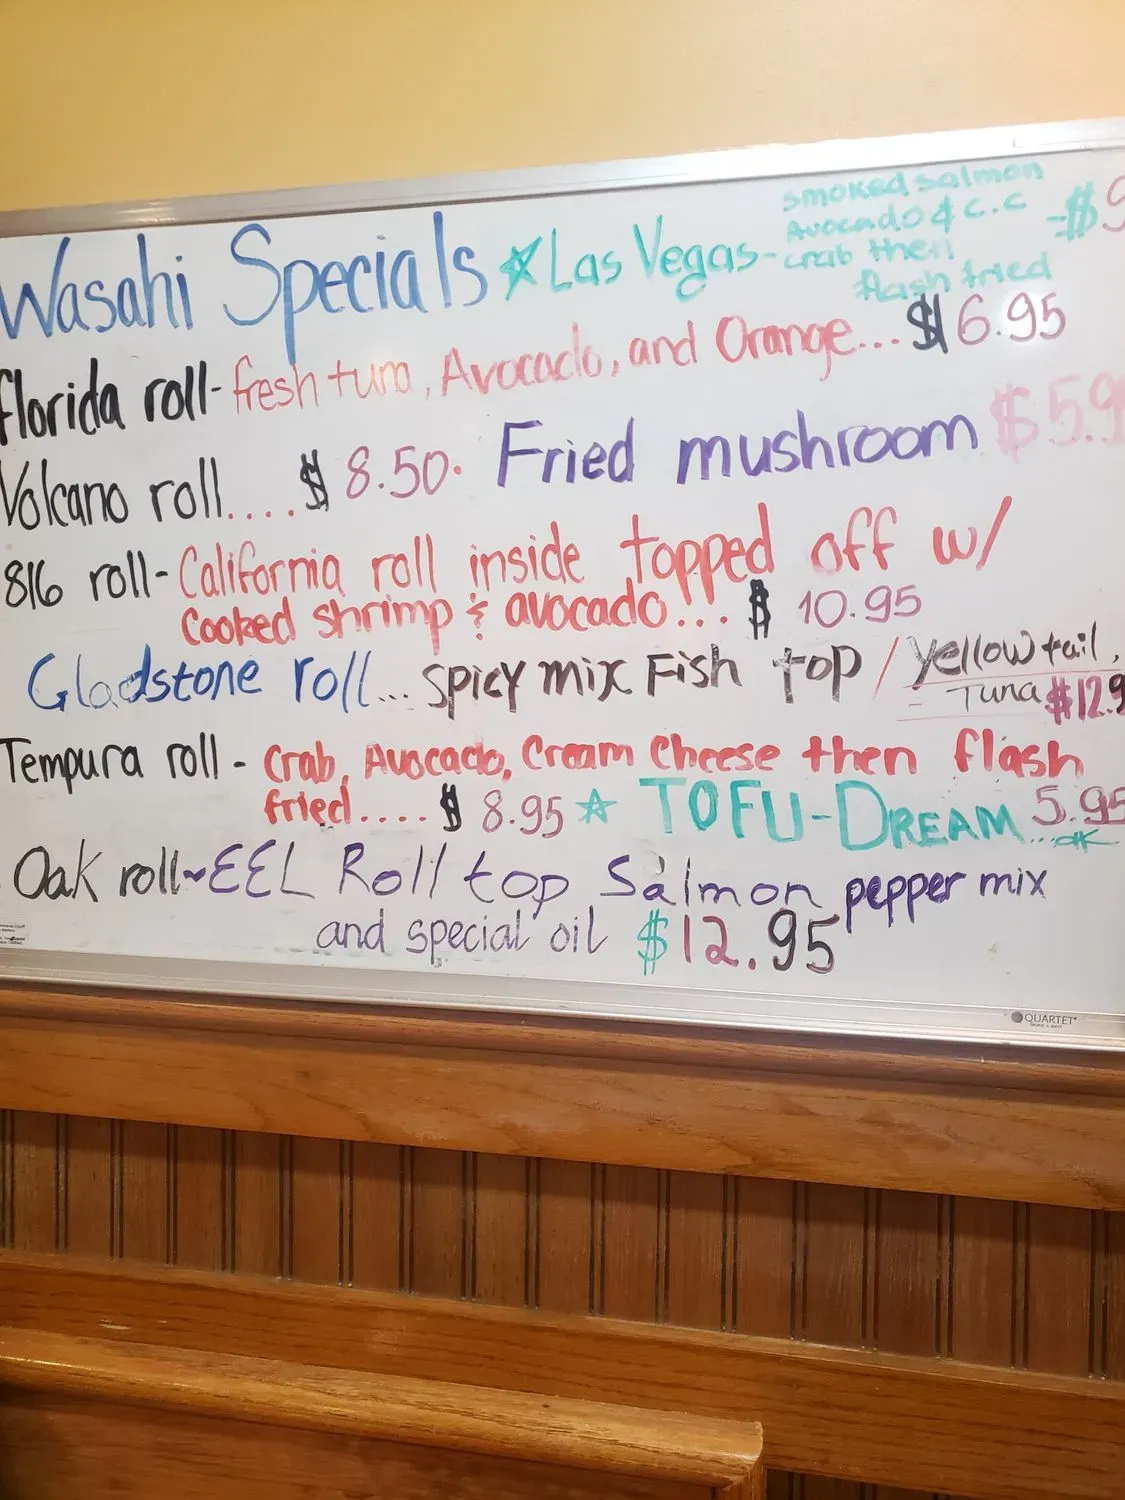 Wasahi Specials ☆ Las Vegas - smoked salmon
Avocado & c.c
crab then
flash fried -$9
Florida roll - fresh tuna, Avocado, and Orange... $6.95
Volcano roll.... $8.50. Fried mushroom $5.9
816 roll - California roll inside topped off w/
Cooked shrimp & avocado... $10.95
Gladstone roll... spicy mix Fish top / yellow tail,
- Tuna $12.9
Tempura roll - Crab, Avocado, Cream Cheese then flash
fried.... $8.95 ☆ TOFU-DREAM 5.95
Oak roll~EEL Roll top Salmon pepper mix
and special oil $12.95
QUARTET